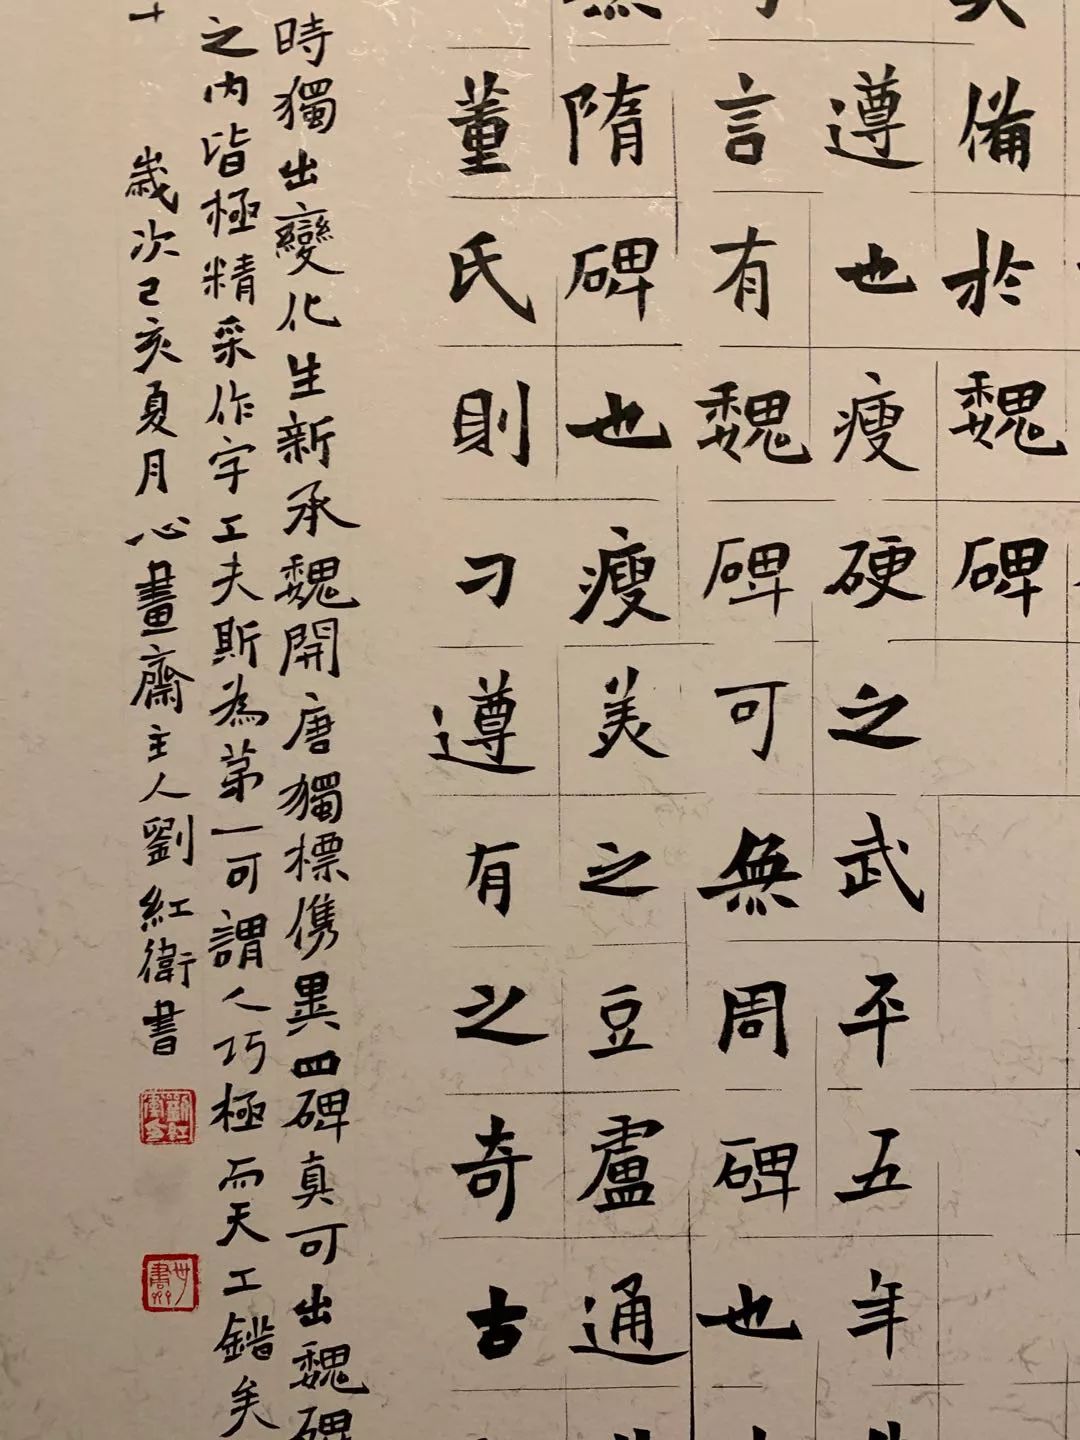 備於魏碑
遵也瘦硬之武平五年
言有魏碑可無周碑也
無隋碑也瘦美之豆盧通
董氏則刁遵有之奇古
時獨出變化生新承魏開唐獨標儁異四碑真可出魏碑
之內皆極精采作字工夫斯為苐一可謂人巧極而天工錯矣
歲次己亥夏月心畫齋主人劉紅衛書